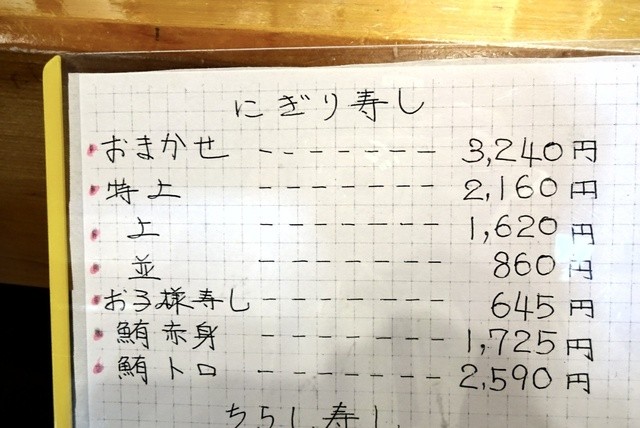 にぎり寿し
おまかせ ------- 3,240円
特上 ------- 2,160円
上 ------- 1,620円
並 ------- 860円
お子様寿し ------- 645円
鮪赤身 ------- 1,725円
鮪トロ ------- 2,590円
ちらし寿し